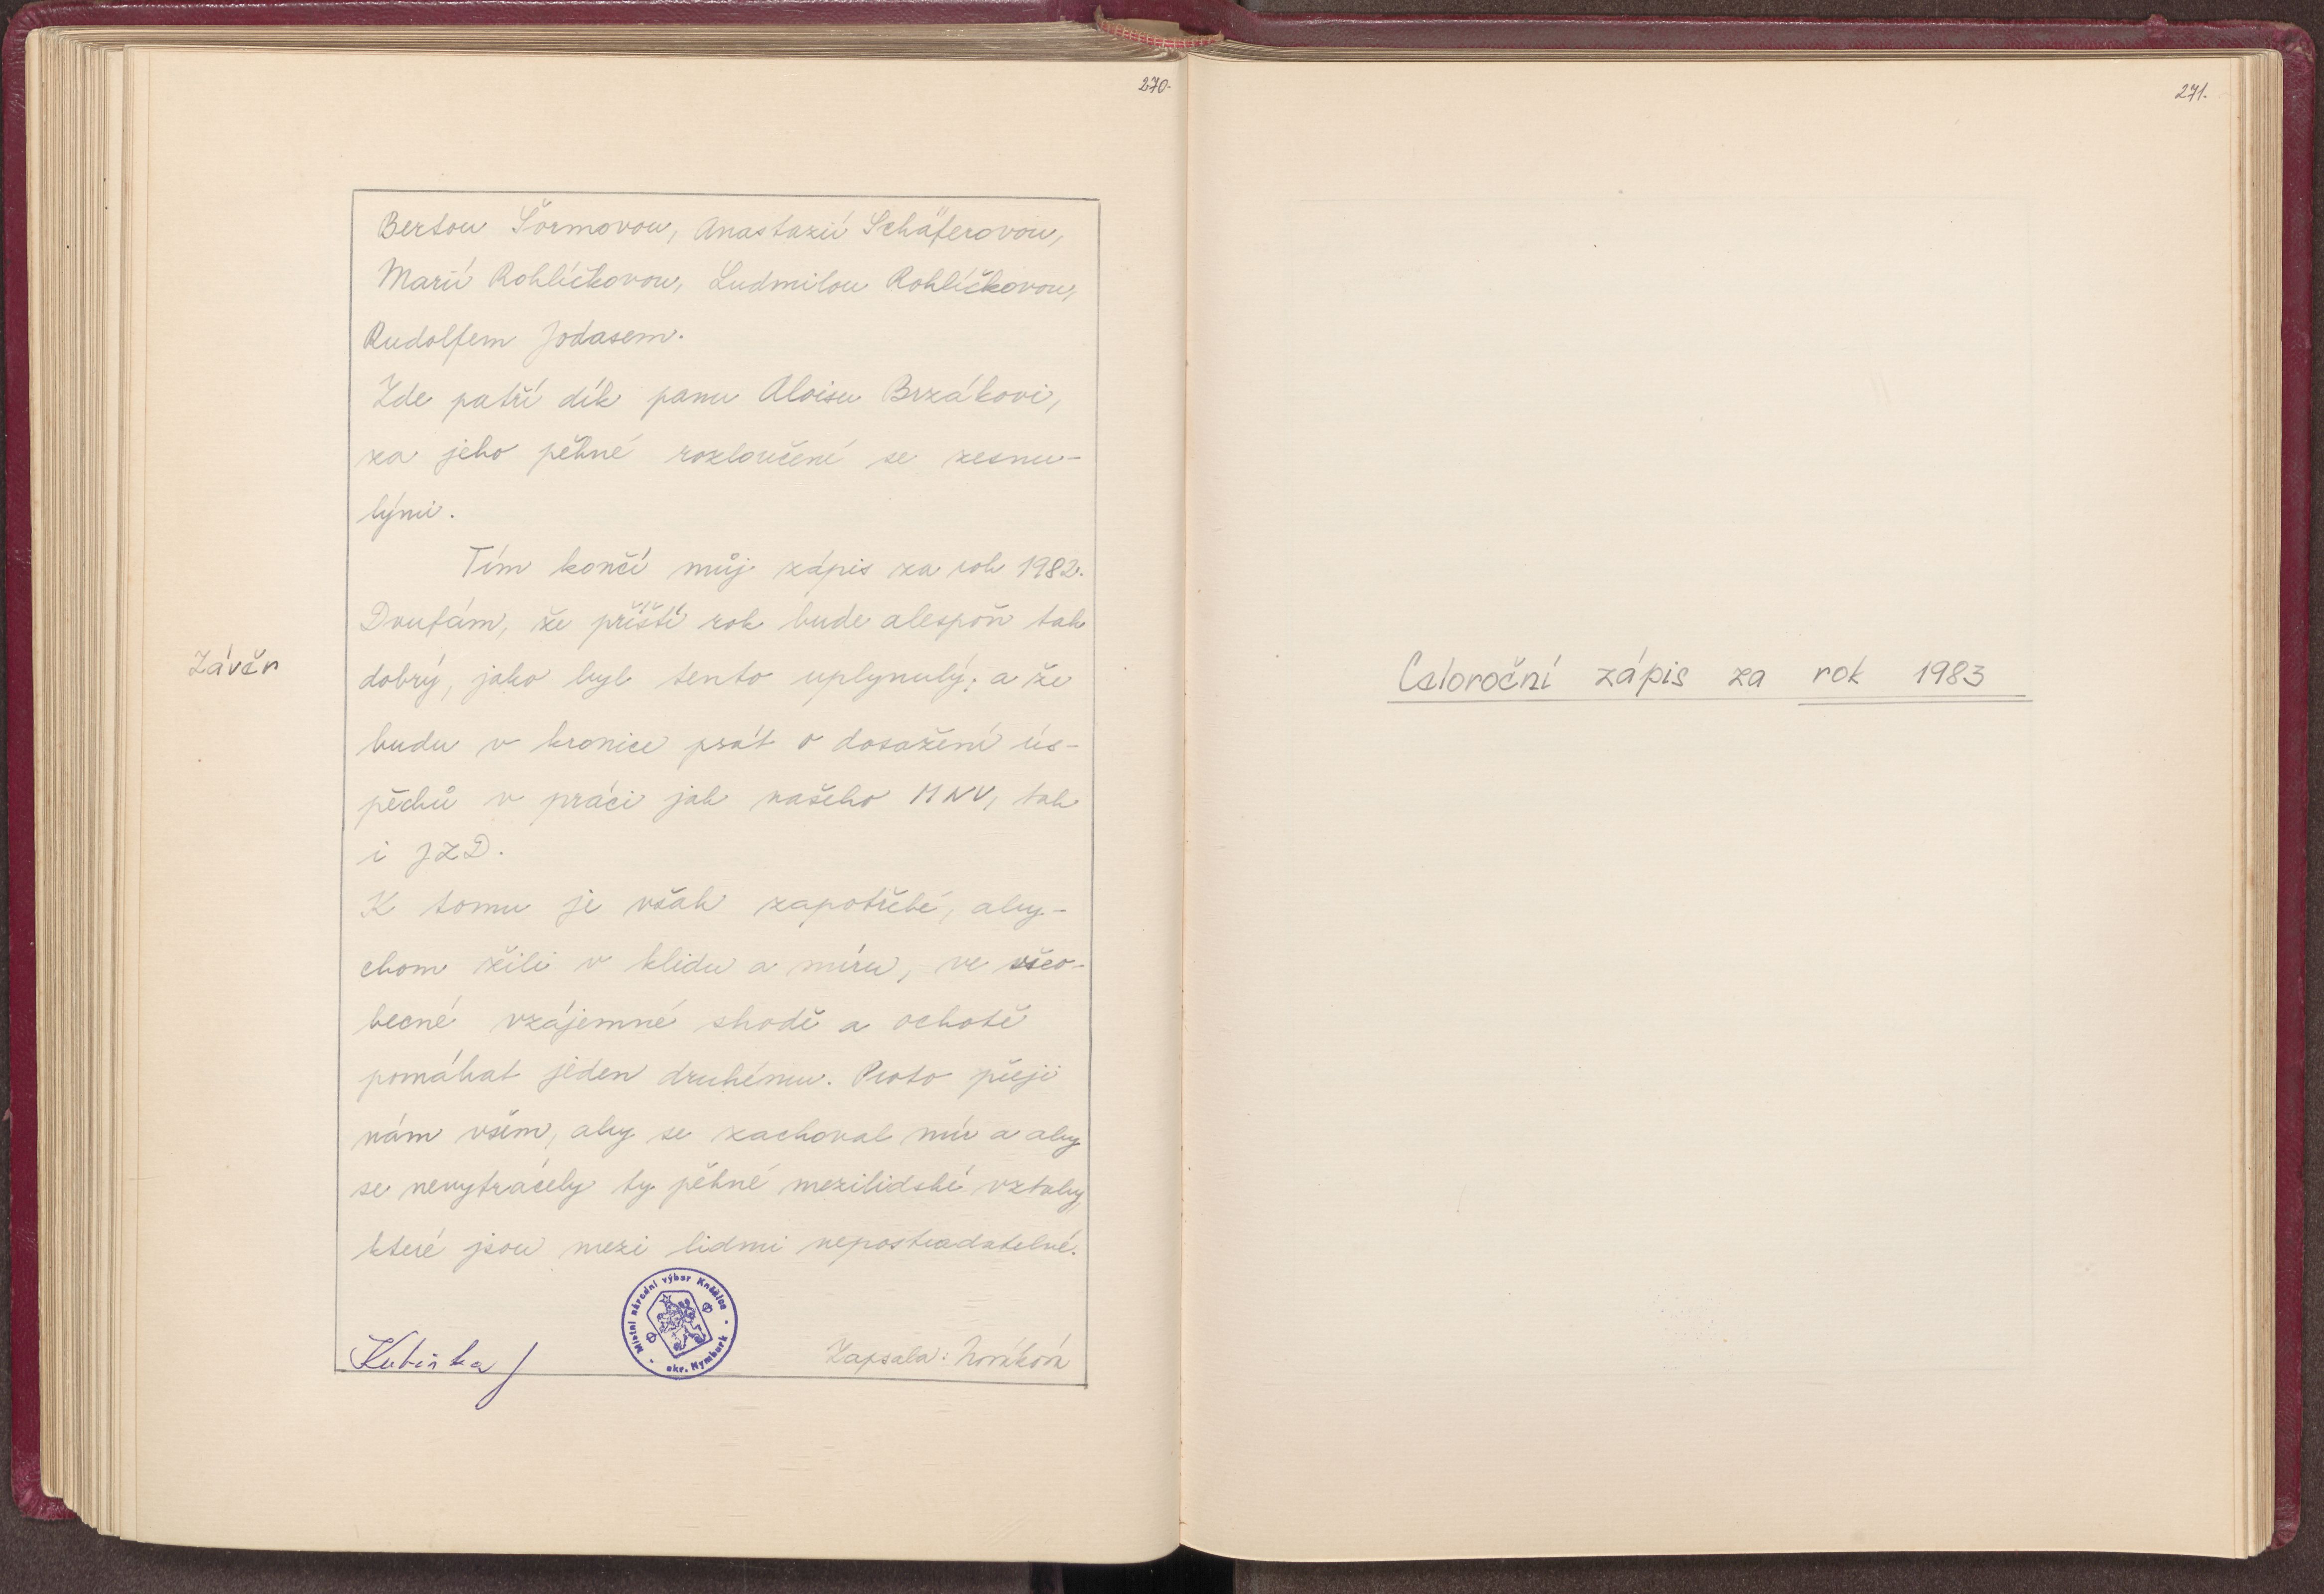 270.
Bertou Šórmovou, Anastazií Schäferovou,
Marií Rohlíčkovou, Ludmilou Rohlíčkovou,
Rudolfem Jodasem.
Zde patří dík panu Aloisu Brzákovi,
za jeho pěkné rozloučení se zesnu-
lými.
Tím končí můj zápis za rok 1982.
Doufám, že příští rok bude alespoň tak
Závěr
dobrý, jako byl tento uplynulý; a že
budu v kronice psát o dosažení ús-
pěchů v práci jak našeho MNV, tak
i JZD.
K tomu je však zapotřebí, aby-
chom žili v klidu a míru, ve všeo-
becné vzájemné shodě a ochotě
pomáhat jeden druhému. Proto přeji
nám všem, aby se zachoval mír a aby
se nevytrácely ty pěkné mezilidské vztahy,
které jsou mezi lidmi nepostradatelné.
Místní národní výbor Kněžice
okr. Nymburk
Zapsala: Nováková
271.
Celoroční zápis za rok 1983